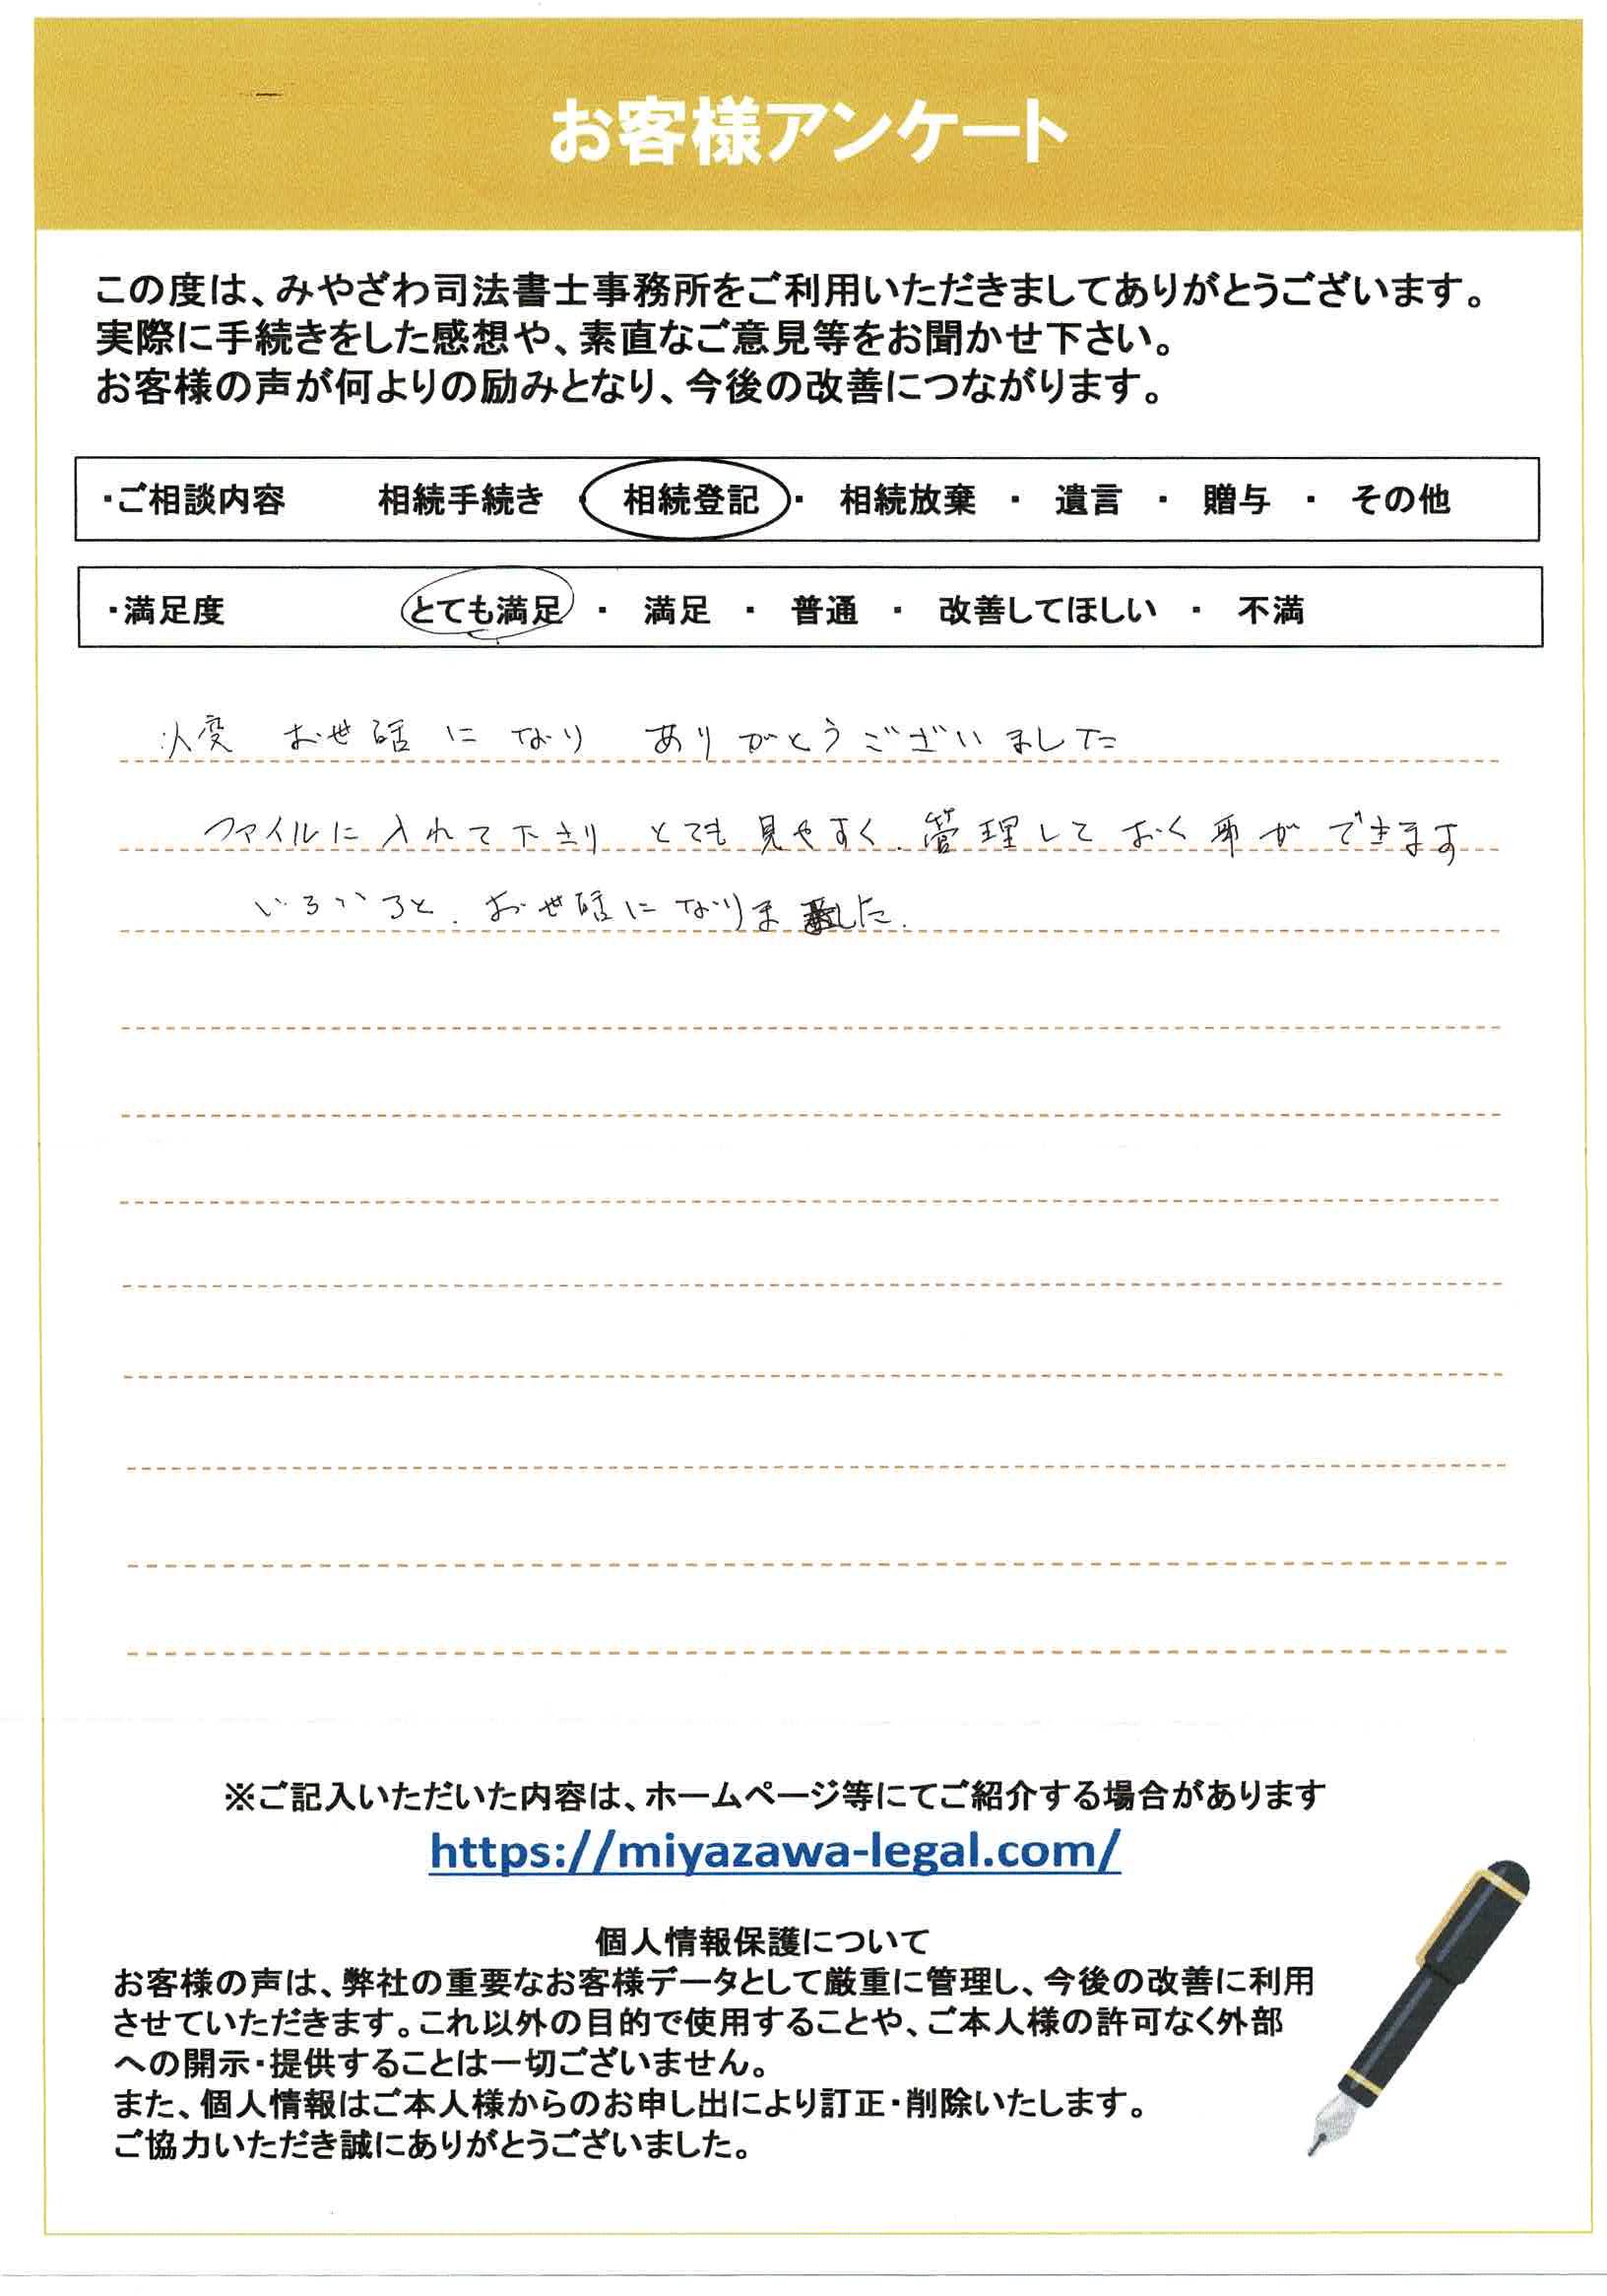 お客様アンケート
この度は、みやざわ司法書士事務所をご利用いただきましてありがとうございます。
実際に手続きをした感想や、素直なご意見等をお聞かせ下さい。
お客様の声が何よりの励みとなり、今後の改善につながります。
・ご相談内容 相続手続き ・ 相続登記 ・ 相続放棄 ・ 遺言 ・ 贈与 ・ その他
・満足度 とても満足 ・ 満足 ・ 普通 ・ 改善してほしい ・ 不満
大変 お世話 に なり ありがとうございました
ファイルに 入れて下さり とても 見やすく、管理して おく 事が できます
いろいろと、お世話になりました。
※ご記入いただいた内容は、ホームページ等にてご紹介する場合があります
https://miyazawa-legal.com/
個人情報保護について
お客様の声は、弊社の重要なお客様データとして厳重に管理し、今後の改善に利用
させていただきます。これ以外の目的で使用することや、ご本人様の許可なく外部
への開示・提供することは一切ございません。
また、個人情報はご本人様からのお申し出により訂正・削除いたします。
ご協力いただき誠にありがとうございました。